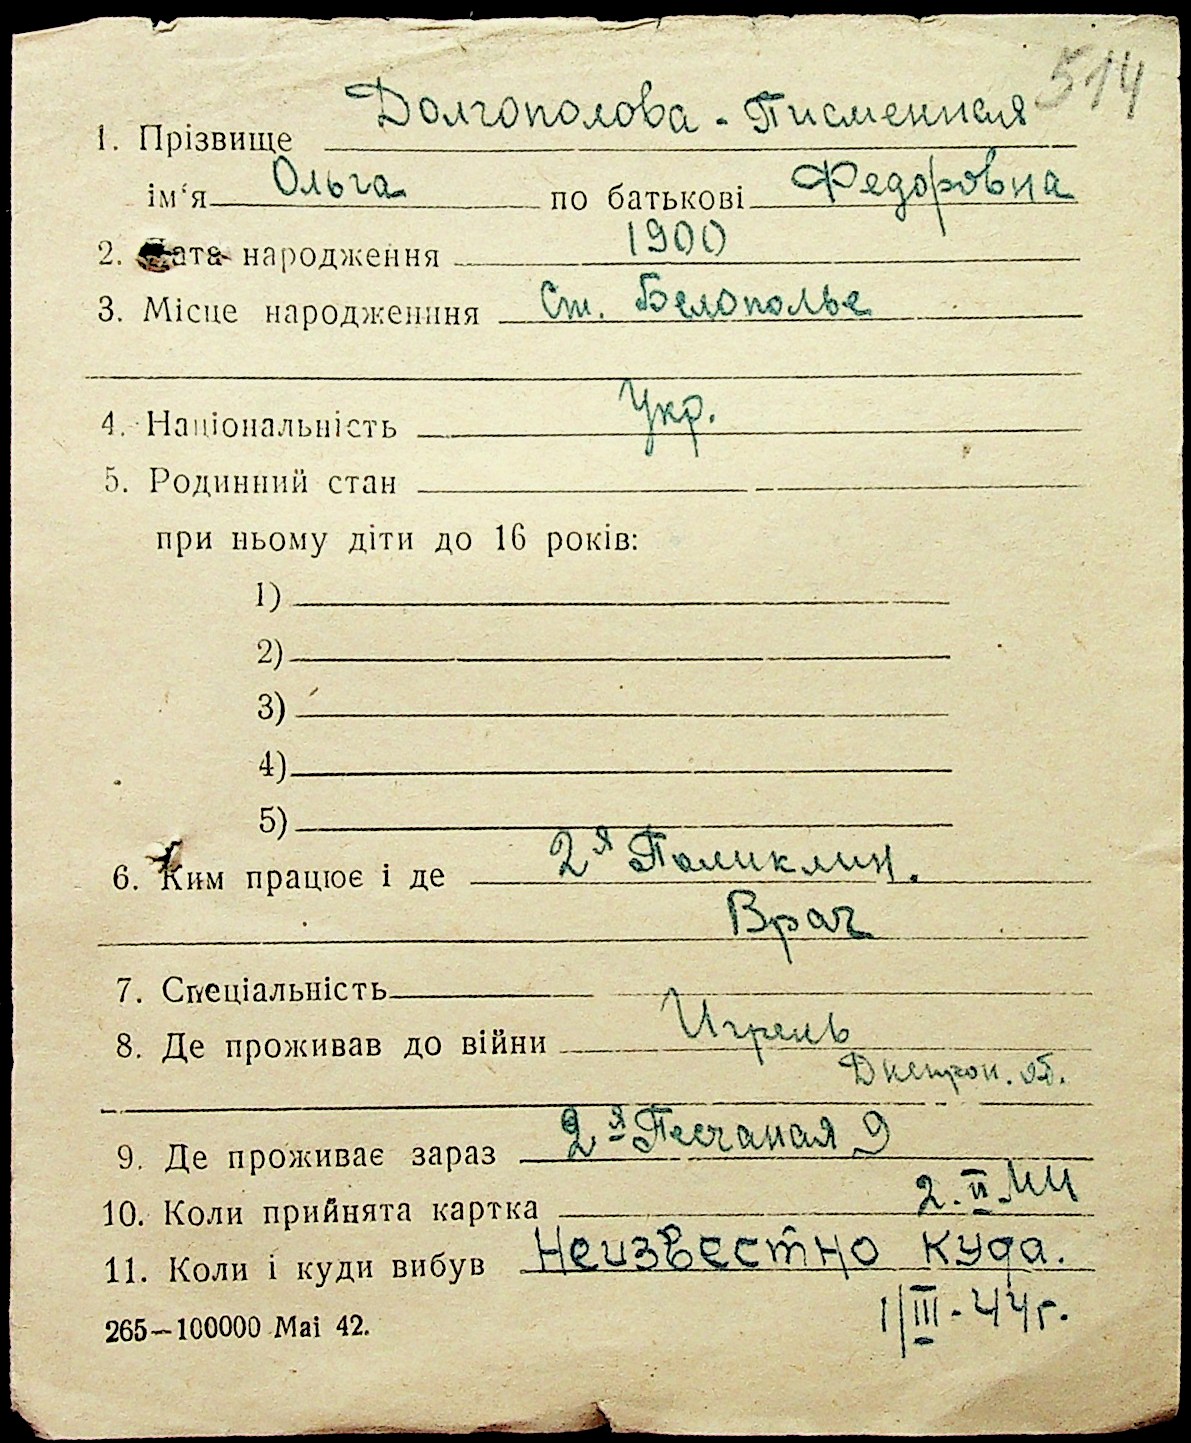 514
1. Прізвище Долгополова - Писменная
ім'я Ольга по батькові Федоровна
2. Дата народження 1900
3. Місце народженння Ст. Белополье
4. Національність Укр.
5. Родинний стан
при ньому діти до 16 років:
1)
2)
3)
4)
5)
6. Ким працює і де 2я Поликлин.
Врач
7. Спеціальність
8. Де проживав до війни Игрень
Днепроп. об.
9. Де проживає зараз 2я Песчаная 9
10. Коли прийнята картка 2.II.44
11. Коли і куди вибув Неизвестно куда.
1/III-44г.
265—100000 Mai 42.